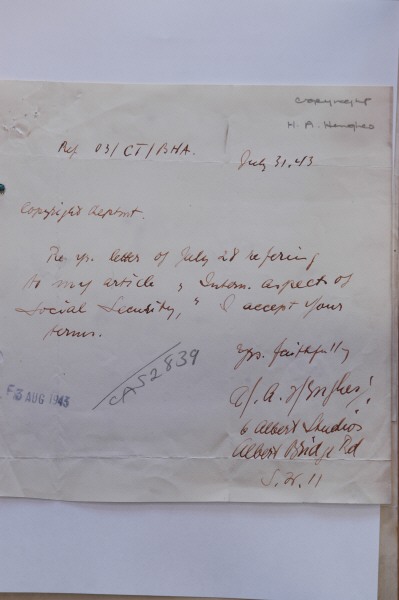 Copyright
H. A. Hughes
Ref 03/CT/BHA.
July 31.43
Copyright deptmt.
Re yr. letter of July 28 refering
to my article „ Intern. aspects of
Social Security, " I accept your
terms.
Yrs. faithfully
H. A. Hughes
6 Albert Studios
Albert Bridge Rd
S.W. 11
3 AUG 1943
CA52839